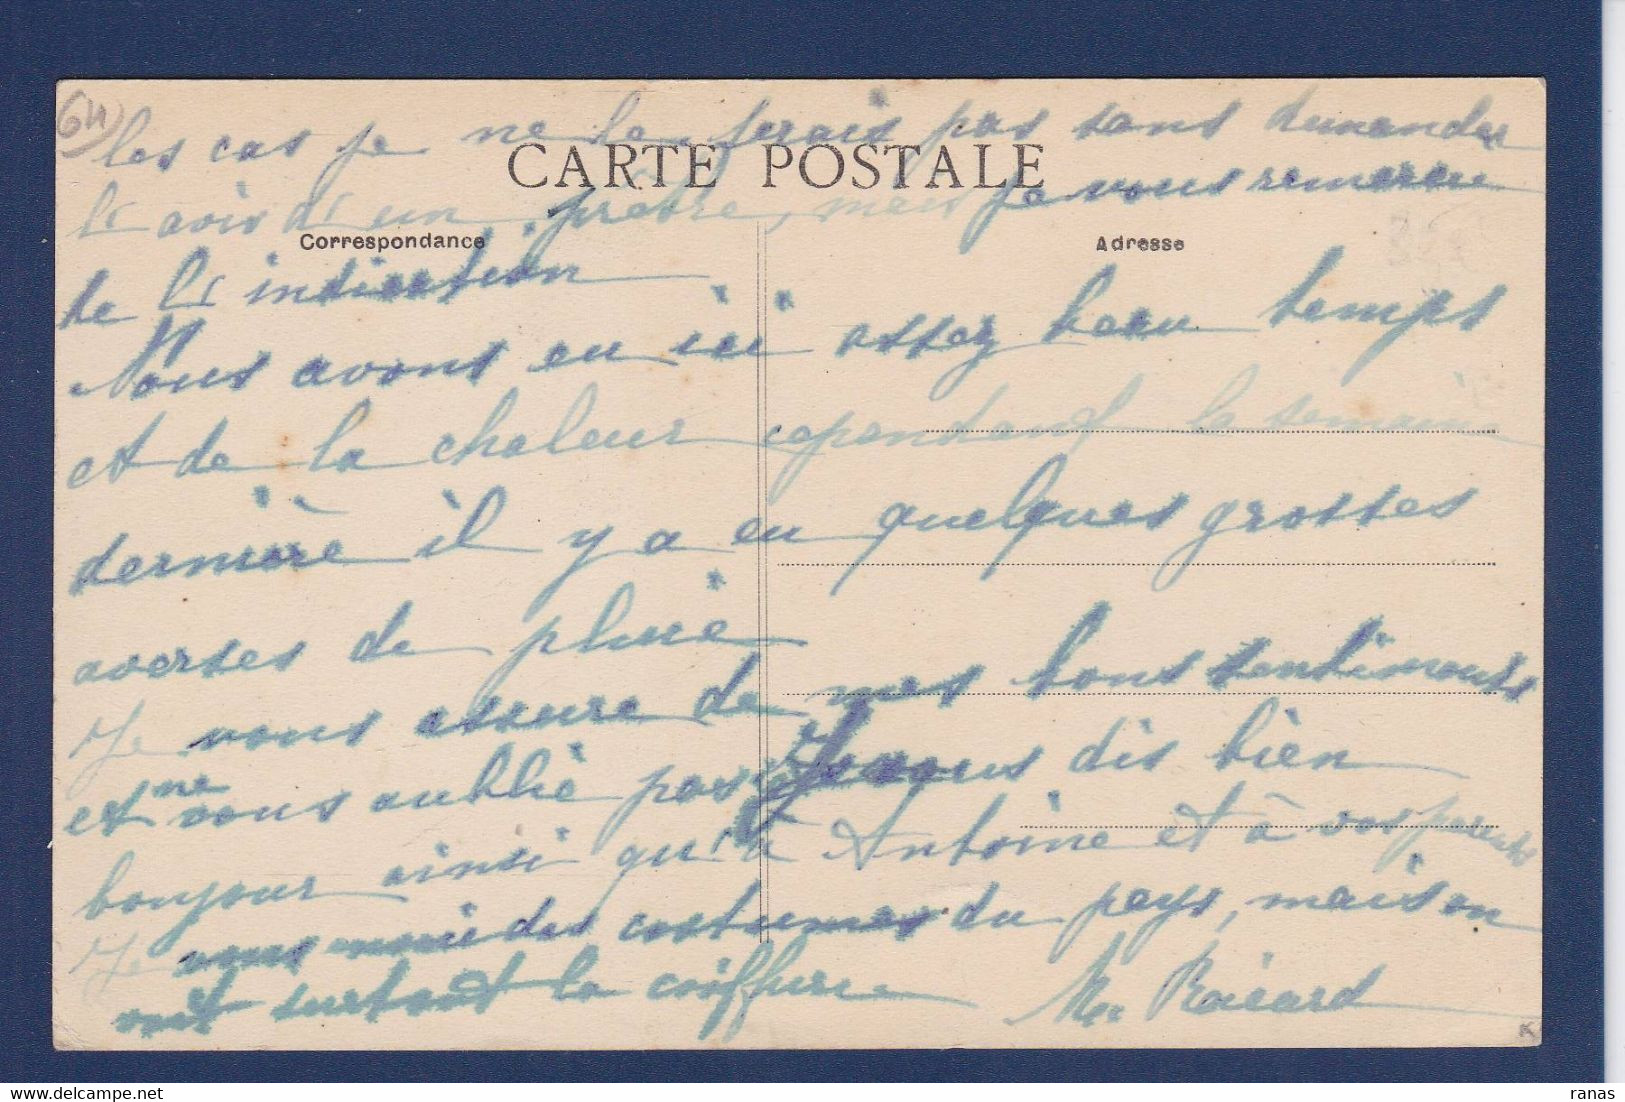 64
les cas je ne le ferais pas sans demander
CARTE POSTALE
l'avis d'un prêtre, mais je vous remercie
Correspondance
Adresse
de l'indication
Nous avons eu ici assez beau temps
et de la chaleur cependant la semaine
dernière il y a eu quelques grosses
averses de pluie
Je vous assure de mes bons sentiments
et ne vous oublie pas Je vous dis bien
bonjour ainsi qu'à Antoine et à vos parents
Je vous envoie des costumes du pays, mais on
voit surtout la coiffure
ranas